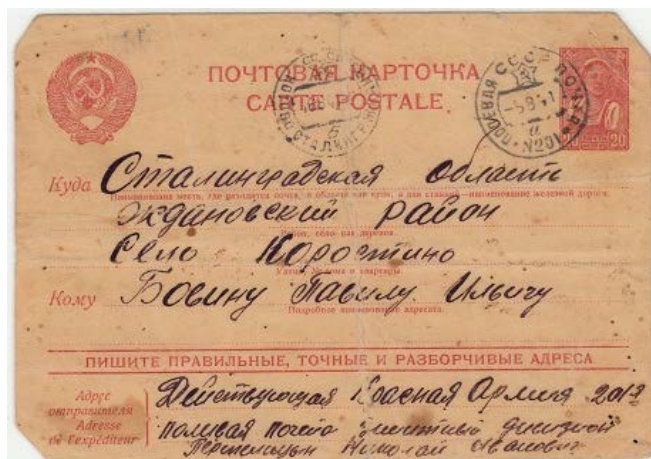 ПОЧТОВАЯ КАРТОЧКА
CARTE POSTALE
ПОЛЕВАЯ ПОЧТА
СССР
-5.9.41
а
№201
20 20
Куда Сталинградская области
Наименование места, где находится почта, и области или края, а для станций—наименование железной дороги.
Ждановский район
Район, село или деревня.
Село Коростино
Улица, № дома и квартиры.
Кому Бовину Павилу Ильичу
Подробное наименование адресата.
ПИШИТЕ ПРАВИЛЬНЫЕ, ТОЧНЫЕ И РАЗБОРЧИВЫЕ АДРЕСА
Адрес отправителя
Adresse de l'expéditeur
Действующая Красная Армия 201
поливая почта зинитный дивизион
Николай Иванович